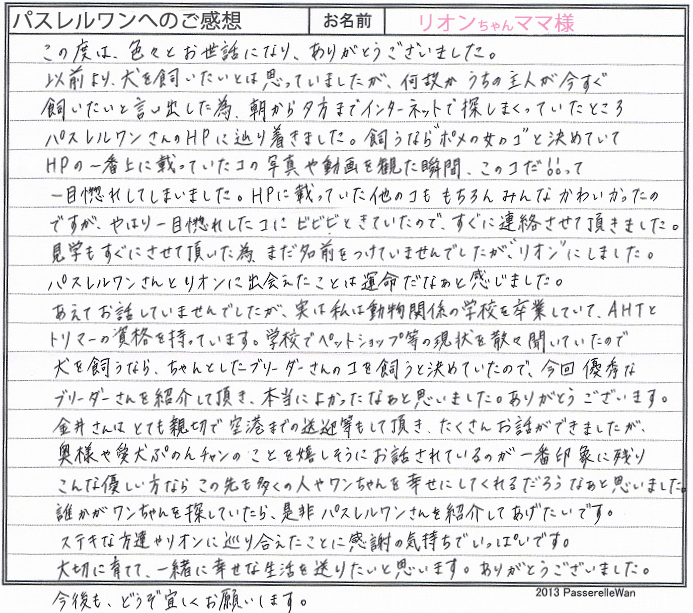 パスレルワンへのご感想 お名前 リオンちゃんママ様
この度は、色々とお世話になり、ありがとうございました。
以前より、犬を飼いたいとは思っていましたが、何故かうちの主人が今すぐ
飼いたいと言い出した為、朝から夕方までインターネットで探しまくっていたところ
パスレルワンさんのHPに辿り着きました。飼うなら"ポメの女のコ"と決めていて
HPの一番上に載っていたコの写真や動画を観た瞬間、このコだ!!って
一目惚れしてしまいました。HPに載っていた他のコももちろんみんなかわいかったの
ですが、やはり一目惚れしたコにビビビときていたので、すぐに連絡させて頂きました。
見学もすぐにさせて頂いた為、まだ名前をつけていませんでしたが、"リオン"にしました。
パスレルワンさんとリオンに出会えたことは運命だなぁと感じました。
あえてお話していませんでしたが、実は私は動物関係の学校を卒業していて、AHTと
トリマーの資格を持っています。学校でペットショップ等の現状を散々聞いていたので
犬を飼うなら、ちゃんとしたブリーダーさんのコを飼うと決めていたので、今回優秀な
ブリーダーさんを紹介して頂き、本当によかったなぁと思いました。ありがとうございます。
金井さんはとても親切で空港までの送迎等もして頂き、たくさんお話ができましたが、
奥様や愛犬ぷのんチャンのことを嬉しそうにお話されているのが一番印象に残り
こんな優しい方ならこの先も多くの人やワンちゃんを幸せにしてくれるだろうなぁと思いました。
誰かがワンちゃんを探していたら、是非パスレルワンさんを紹介してあげたいです。
ステキな方達やリオンに巡り合えたことに感謝の気持ちでいっぱいです。
大切に育て、一緒に幸せな生活を送りたいと思います。ありがとうございました。
今後も、どうぞ宜しくお願いします。
2013 PasserelleWan